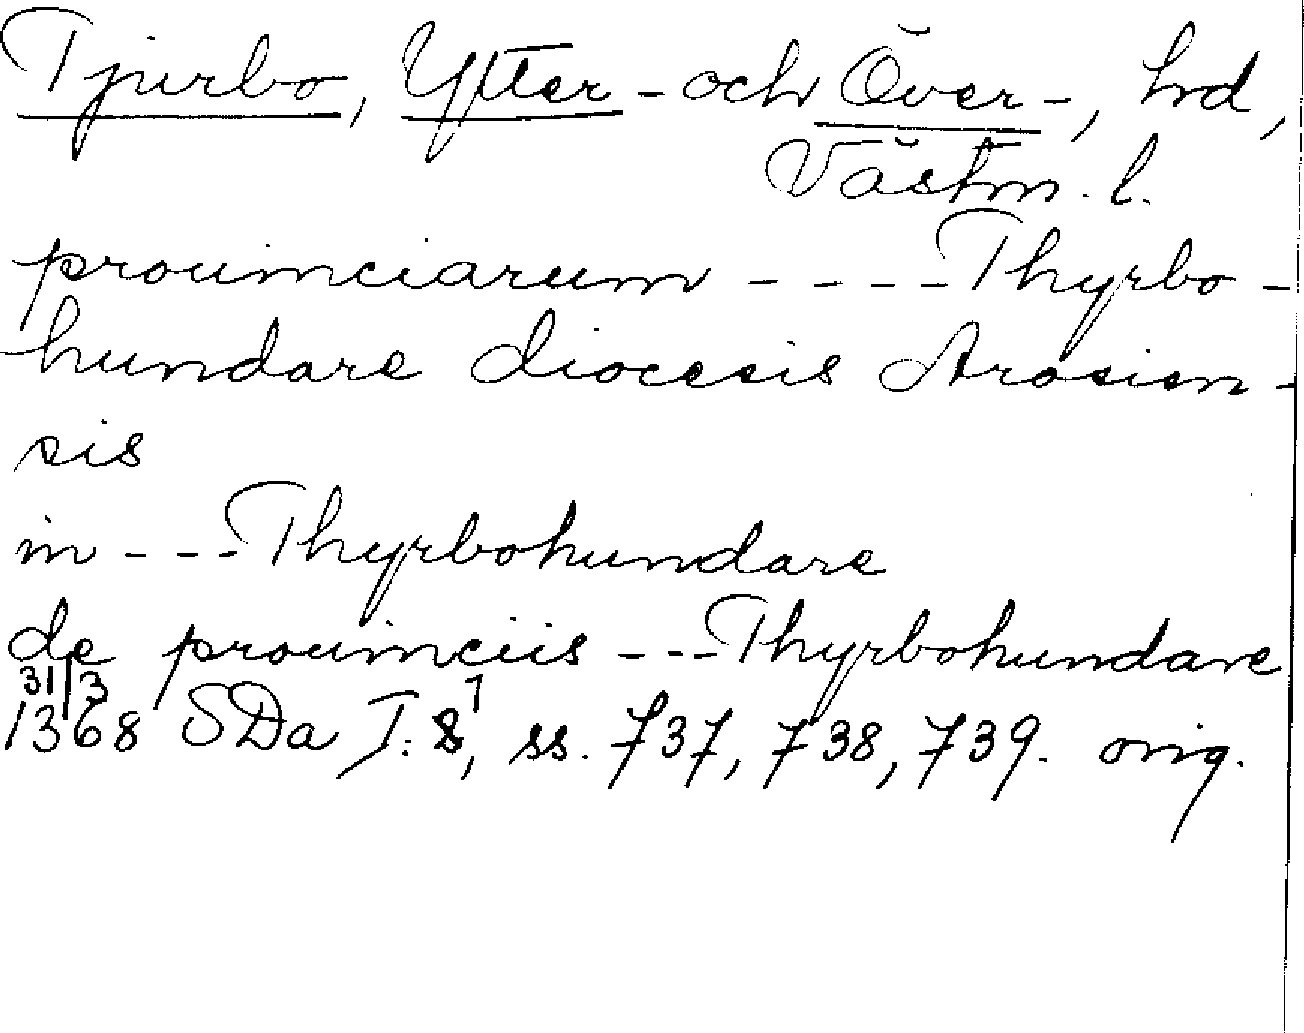 Tjurbo, Ytter- och Över-, hd,
Västm. l.
prouinciarum - - - - Thyrbo-
hundare diocesis Arosien-
sis
in - - - Thyrbohundare
de prouinciis - - - Thyrbohundare
31/3
1368 SDa I: 8¹, ss. 737, 738, 739. orig.